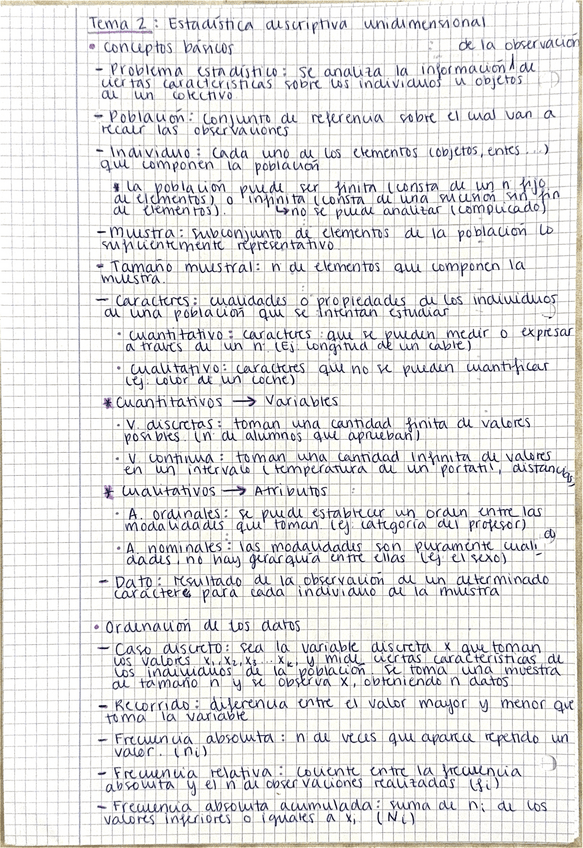 Tema 2: Estadística descriptiva unidimensional
• Conceptos básicos
de la observación
- Problema estadístico: se analiza la información de
ciertas características sobre los individuos u objetos
de un colectivo
- Población: conjunto de referencia sobre el cual van a
recaer las observaciones
- Individuo: cada uno de los elementos (objetos, entes...)
que componen la población
* la población puede ser finita (consta de un n fijo
de elementos) o infinita (consta de una sucesión sin fin
de elementos). ↳ no se puede analizar (complicado)
- Muestra: subconjunto de elementos de la población lo
suficientemente representativo.
- Tamaño muestral: n de elementos que componen la
muestra.
- Caracteres: cualidades o propiedades de los individuos
de una población que se intentan estudiar
· cuantitativo: caracteres que se pueden medir o expresar
a través de un n. (Ej. longitud de un cable)
· cualitativo: caracteres que no se pueden cuantificar
(ej. color de un coche)
* Cuantitativos → Variables
· V. discretas: toman una cantidad finita de valores
posibles. (n de alumnos que aprueban)
· V. continua: toman una cantidad infinita de valores
en un intervalo (temperatura de un portatil, distancias)
* Cualitativos → Atributos
· A. ordinales: se puede establecer un orden entre las
modalidades que toman (ej: categoría del profesor)
· A. nominales: las modalidades son puramente cuali
dades, no hay gerarquía entre ellas (ej el sexo)
- Dato: resultado de la observación de un determinado
caractere para cada individuo de la muestra
• Ordenación de los datos
- Caso discreto: sea la variable discreta x que toman
los valores x₁, x₂, x₃... xₖ, y mide ciertas características de
los individuos de la población se toma una muestra
de tamaño n y se observa x, obteniendo n datos
- Recorrido: diferencia entre el valor mayor y menor que
toma la variable
- Frecuencia absoluta: n de veces que aparece repetido un
valor. (ni)
- Frecuencia relativa: cociente entre la frecuencia
absoluta y el n de observaciones realizadas (fi)
- Frecuencia absoluta acumulada: suma de ni de los
valores inferiores o iguales a xi (Ni)